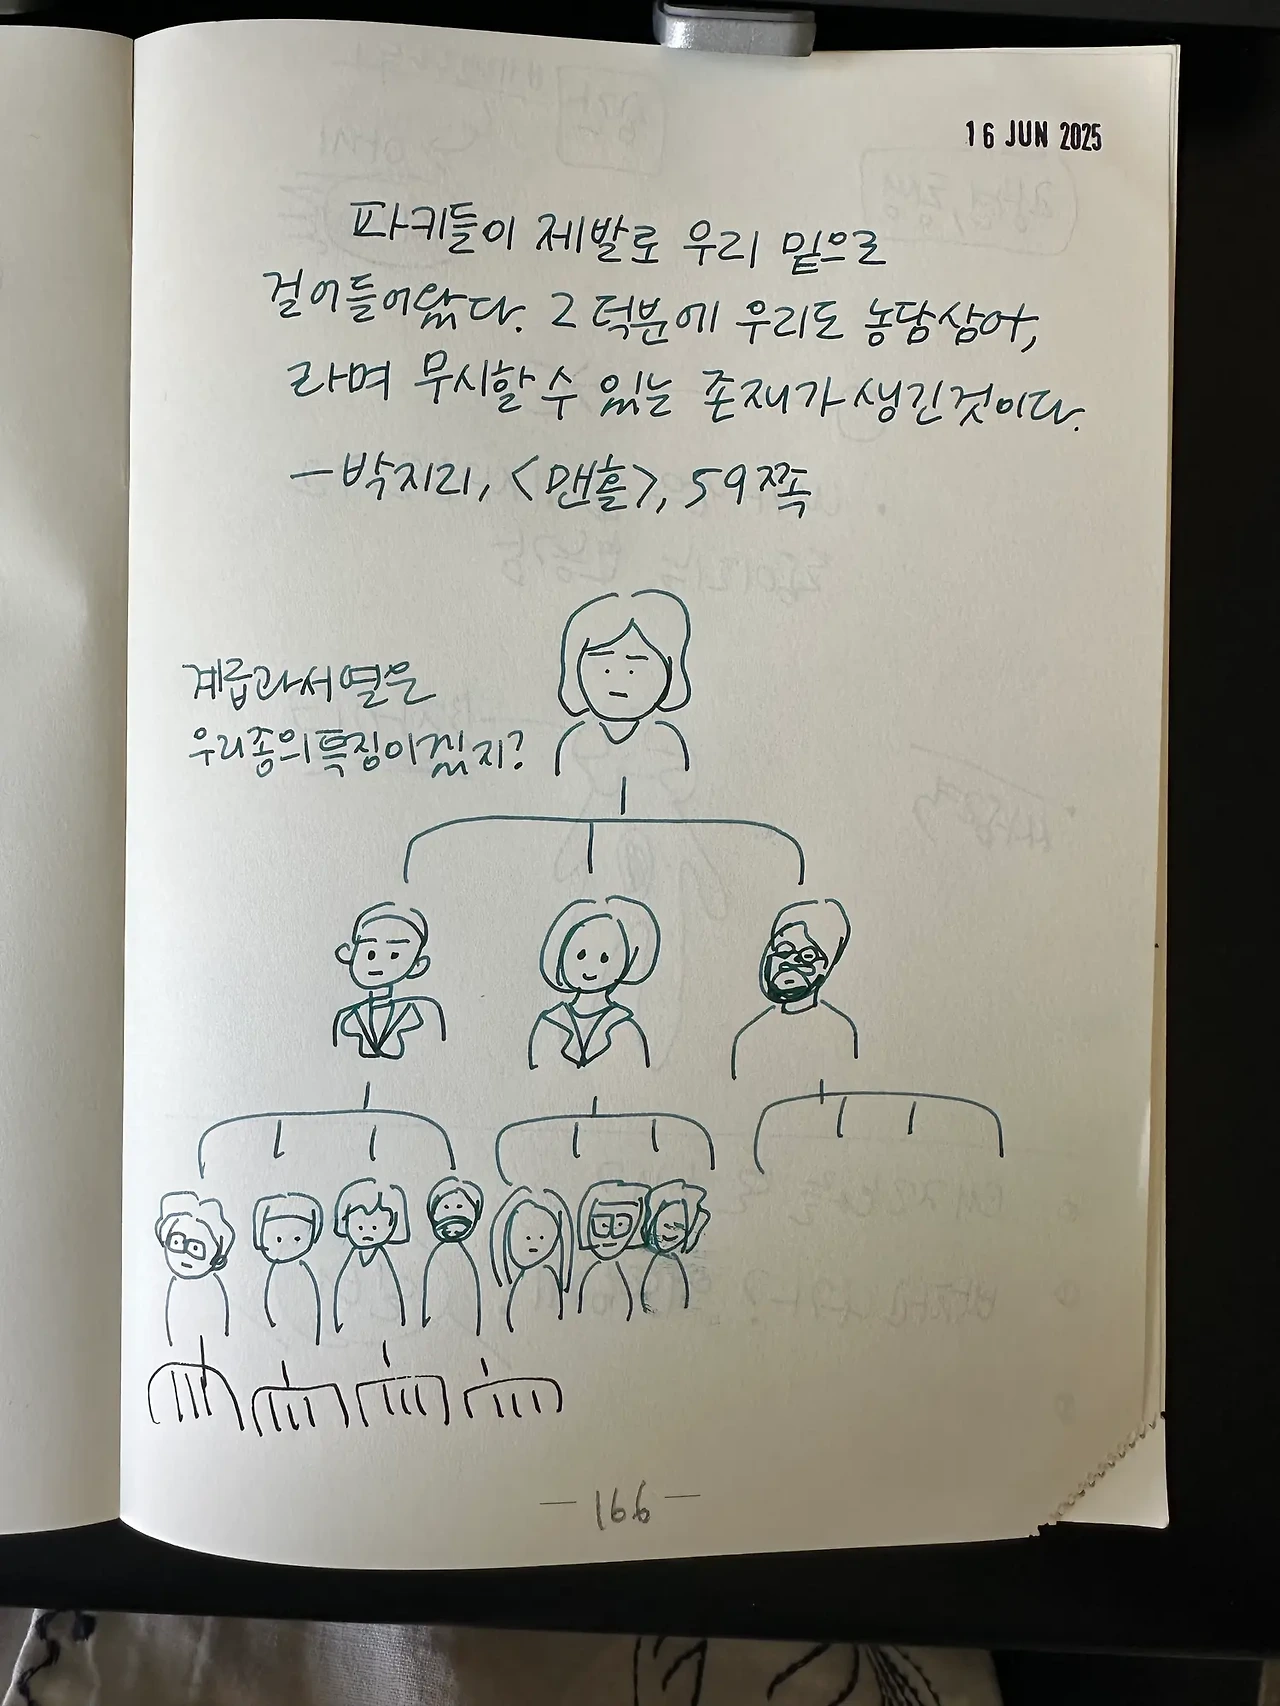 16 JUN 2025
파키들이 제발로 우리 밑으로
걸어들어왔다. 그 덕분에 우리도 농담삼아,
라며 무시할 수 있는 존재가 생긴것이다.
—박지리, <맨홀>, 59쪽
계급과 서열은
우리종의 특징이겠지?
— 166 —